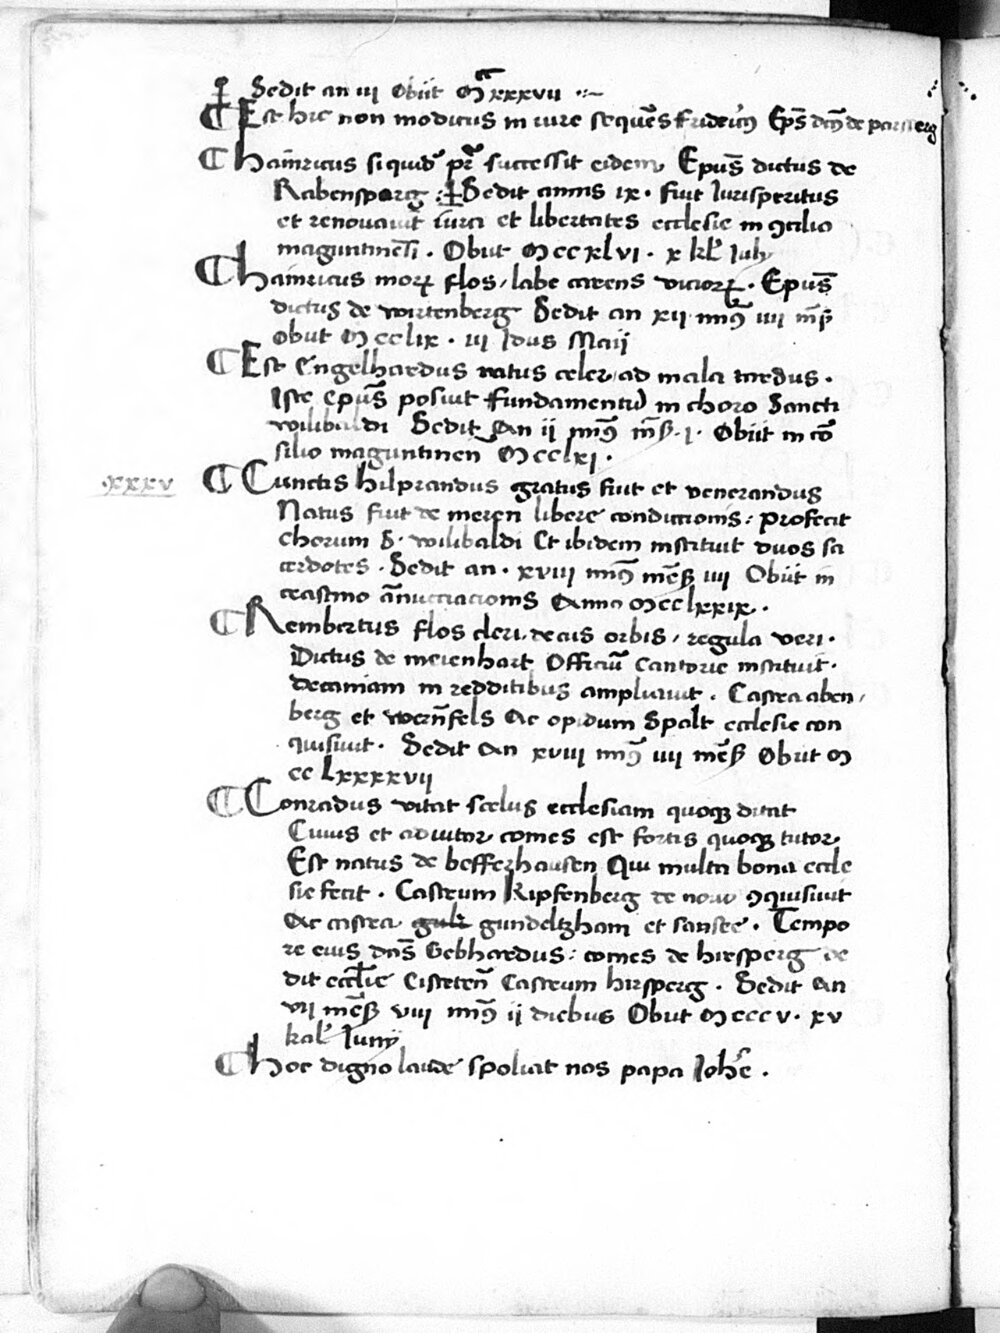 Sedit an iii Obiit Mcc xxxvii
¶ Est hic non modicus in iure sequēs fridericus Epūs dcūs de parsberg
¶ Hainricus siquid pr̄ successit eidem Epūs dictus de
Rabensperg : Sedit annis ix . fuit Iurisperitus
et renovavit iura et libertates ecclesie in ꝯcilio
maguntinēsi . Obiit Mccxlvi . x kl' Iulij
¶ Hainricus morꝝ flos, labe carens viciorꝝ . Epūs
dictus de wirtenberg Sedit an xii min9 iiii mēsß
obiit Mcclix . iii Idus Maij
¶ Est Engelhardus natus celer, ad mala tardus .
Iste epūs posuit fundamentū in choro Sancti
wilibaldi Sedit An ii min9 mēsß . i . Obiit in cō
silio maguntinen Mcclxi .
xxxv
¶ Cunctis hilprandus gratus fuit et venerandus
Natus fuit de meren libere condicionis : profecit
chorum S . wilibaldi Et ibidem instituit duos sa
cerdotes . Sedit an . xviii min9 mēsß iiii Obiit in
crastino ānuncciacionis Anno Mcclxxix .
¶ Rembertus flos cleri, decus orbis, regula veri .
Dictus de meienhart Officiū Cantorie instituit .
decaniam in redditibus ampliavit . Castra aben,
berg et wernfels Ac opidum Spalt ecclesie con
quisivit . Sedit An xviii min9 iiii mēsß Obiit M
cc Lxxxxvii
¶ Conradus vitat scelus ecclesiam quoqꝫ ditat
Cuius et adiutor comes est fortis quoqꝫ tutor
Est natus de pfefferhausen Qui multa bona eccle
sie fecit . Castrum kipfenberg de novo ꝯquisivit
Ac castra gundeltzham et sansee . Tempo
re eius dn̄s Gebhardus : comes de hirsperg de
dit ecclīe Eistetēn Castrum hirsperg . Sedit An
vii mēsß viii min9 ii diebus Obiit Mcccv . xv
kal' Iunij
¶ Hoc digno laude spoliat nos papa Iohēs .